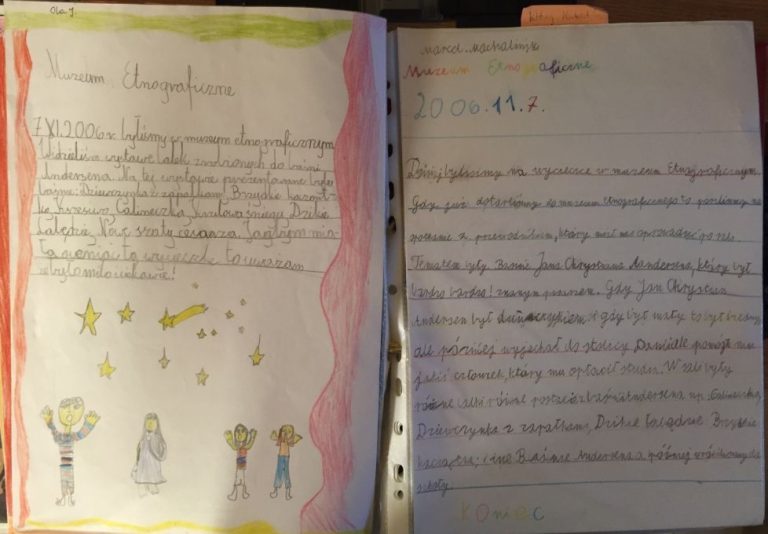 Ola J.
Muzeum Etnograficzne
7 XI.2006 r byliśmy w muzeum etnograficznym
wystawę lalek zrobionych do baśni
Andersena. Na tej wystawie były
baśnie: Dziewczynka z zapałkami, Brzydkie
Calineczka, Królowa śniegu, Dzikie
Łabędzie, Nowe szaty cesarza. Jagbym mia-
ła ocenjać tą wycieczkę to uważam
że było miło i ciekawie!
Marcel
Muzeum Etnograficzne
2006.11.7.
Dzisiaj byliśmy na wycieczce w muzeum Etnograficznym.
Gdy już do muzeum Etnograficznego to poszliśmy na
spotkanie z przewodnikiem, który miał nas oprowadzić po
Tematem były Baśnie Jana Chrystiana Andersena, który był
bardzo bardzo! znanym pisarzem. Gdy Jan Chrystian
Andersen był i gdy był mały to był biedny,
ale później wyjechał do stolicy Danii ale pomógł mu
jakiś człowiek, który mu opłacił studia. W sali były
różne lalki różne postacie z baśni Andersena np. Calineczka,
Dziewczynka z zapałkami, Dzikie łabędzie Brzydkie
kaczątko i inne Baśnie Andersena a później wróciliśmy do
szkoły.
Koniec